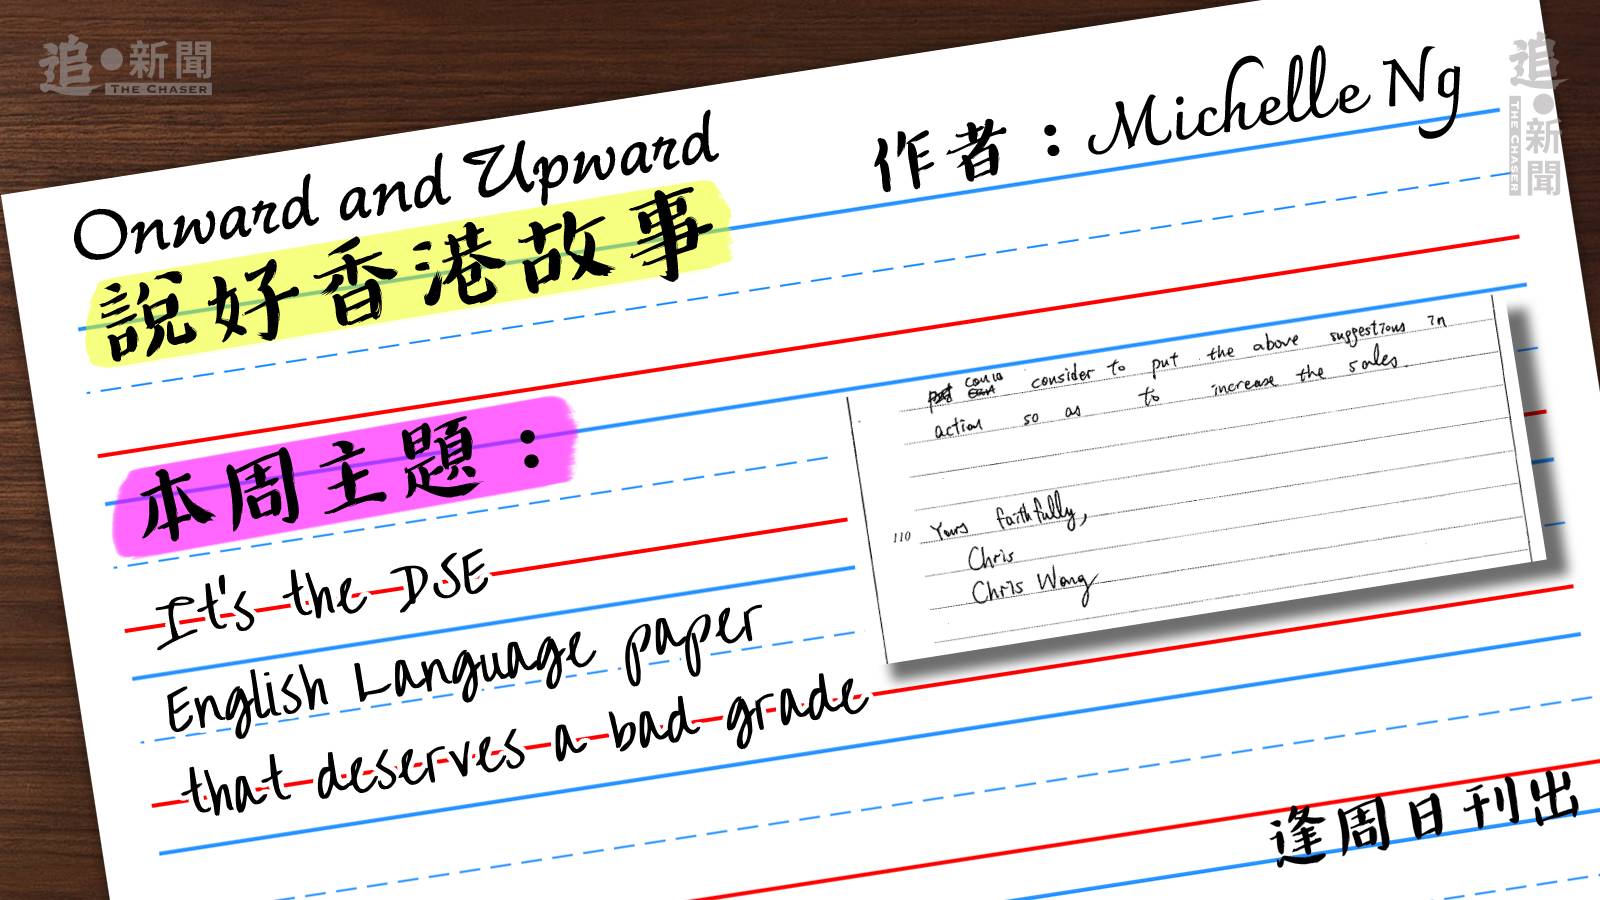 追●新聞
THE CHASER
Onward and Upward
說好香港故事
作者：Michelle Ng
追●新聞
THE CHASER
本周主題：
It's the DSE
English Language paper
that deserves a bad grade
could consider to put the above suggestions in
action so as to increase the sales.
110 Yours faithfully,
Chris
Chris Wong
逢周日刊出